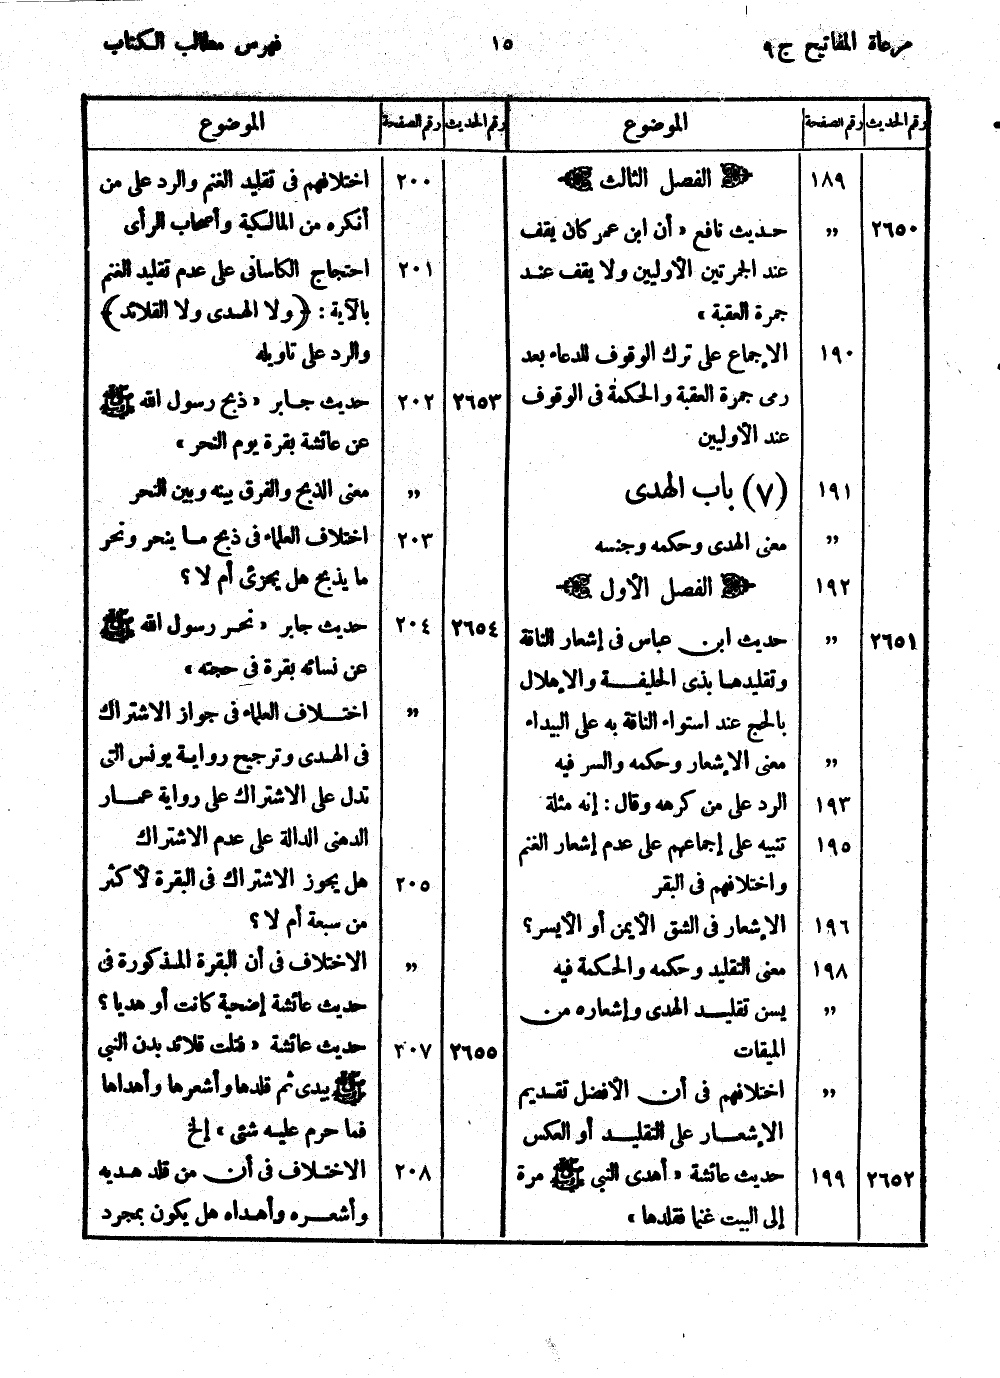 مرعاة المفاتيح ج ٩ ١٥ فهرس مطالب الكتاب
رقم الحديث رقم الصفحة الموضوع
١٨٩ الفصل الثالث
٢٦٥٠ ,, حديث نافع « أن ابن عمر كان يقف
عند الجمرتين الأوليين ولا يقف عند
جمرة العقبة »
١٩٠ الإجماع على ترك الوقوف للدعاء بعد
رمى جمرة العقبة والحكمة فى الوقوف
عند الأوليين
١٩١ (٧) باب الهدى
,, معنى الهدى وحكمه وجنسه
١٩٢ الفصل الأول
٢٦٥١ ,, حديث ابن عباس فى إشعار الناقة
وتقليدها بذى الحليفة والإهلال
بالحج عند استواء الناقة به على البيداء
,, معنى الإشعار وحكمه والسر فيه
١٩٣ الرد على من كرهه وقال : إنه مثلة
١٩٥ تنبيه على إجماعهم على عدم إشعار الغنم
واختلافهم فى البقر
١٩٦ الإشعار فى الشق الأيمن أو الأيسر؟
١٩٨ معنى التقليد وحكمه والحكمة فيه
,, يسن تقليد الهدى وإشعاره من
الميقات
,, اختلافهم فى أن الأفضل تقديم
الإشعار على التقليد أو العكس
٢٦٥٢ ١٩٩ حديث عائشة « أهدى النبي ﷺ مرة
إلى البيت غنما فقلدها »
رقم الحديث رقم الصفحة الموضوع
٢٠٠ اختلافهم فى تقليد الغنم والرد على من
أنكره من المالكية وأصحاب الرأى
٢٠١ احتجاج الكاسانى على عدم تقليد الغنم
بالآية : ﴿ولا الهدى ولا القلائد﴾
والرد على تاويله
٢٦٥٣ ٢٠٢ حديث جابر « ذبح رسول الله ﷺ
عن عائشة بقرة يوم النحر »
,, معنى الذبح والفرق بينه وبين النحر
٢٠٣ اختلاف العلماء فى ذبح ما ينحر ونحر
ما يذبح هل يجزئ أم لا ؟
٢٦٥٤ ٢٠٤ حديث جابر « نحر رسول الله ﷺ
عن نسائه بقرة فى حجته »
,, اختلاف العلماء فى جواز الاشتراك
فى الهدى وترجيح رواية يونس التى
تدل على الاشتراك على رواية عمار
الدهنى الدالة على عدم الاشتراك
٢٠٥ هل يجوز الاشتراك فى البقرة لأكثر
من سبعة أم لا ؟
,, الاختلاف فى أن البقرة المذكورة فى
حديث عائشة إضحية كانت أو هديا ؟
٢٦٥٥ ٢٠٧ حديث عائشة « فتلت قلائد بدن النبي
ﷺ بيدى ثم قلدها وأشعرها وأهداها
فما حرم عليه شئى » إلخ
٢٠٨ الاختلاف فى أن من قلد هديه
وأشعره وأهداه هل يكون بمجرد